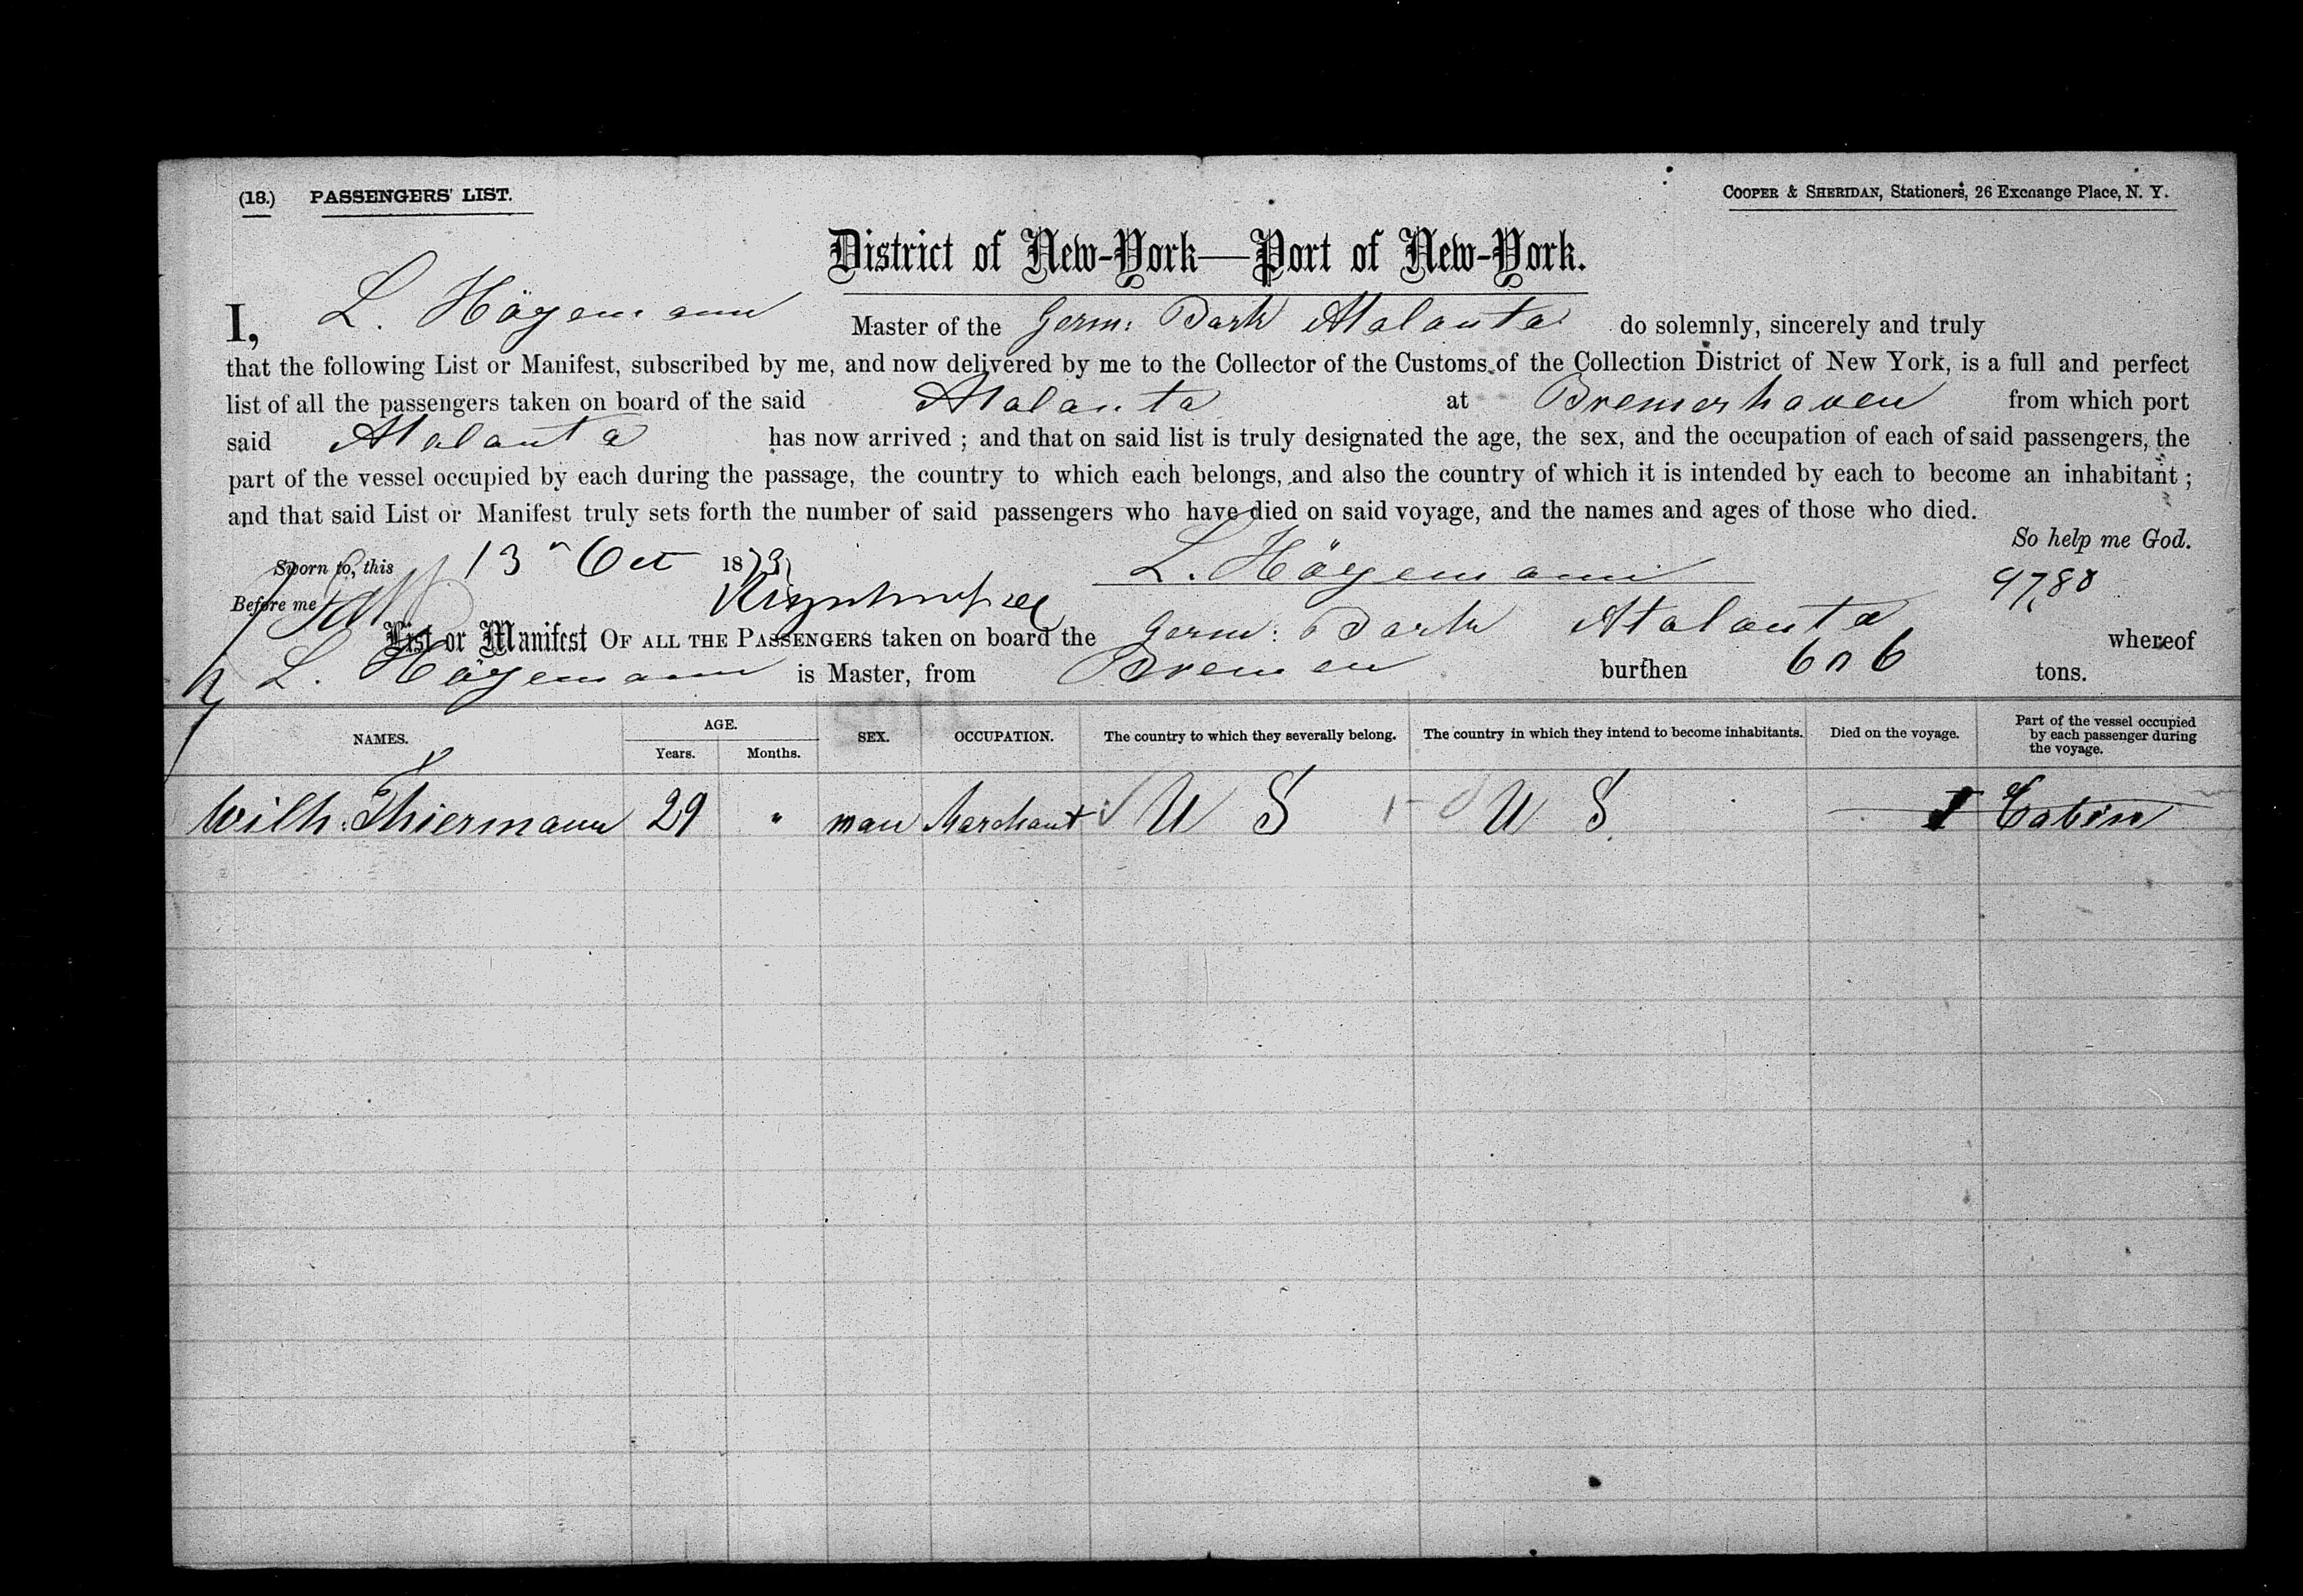 (18.) PASSENGERS' LIST.
COOPER & SHERIDAN, Stationers, 26 Exchange Place, N. Y.
District of New-York—Port of New-York.
I, L. Hägemann Master of the Germ: Bark Atalanta do solemnly, sincerely and truly
that the following List or Manifest, subscribed by me, and now delivered by me to the Collector of the Customs of the Collection District of New York, is a full and perfect
list of all the passengers taken on board of the said Atalanta at Bremerhaven from which port
said Atalanta has now arrived ; and that on said list is truly designated the age, the sex, and the occupation of each of said passengers, the
part of the vessel occupied by each during the passage, the country to which each belongs, and also the country of which it is intended by each to become an inhabitant ;
and that said List or Manifest truly sets forth the number of said passengers who have died on said voyage, and the names and ages of those who died.
So help me God.
Sworn to, this 13 Oct 1873 L. Hägemann
9780
Before me
List or Manifest OF ALL THE PASSENGERS taken on board the Germ: Bark Atalanta whereof
L. Hägemann is Master, from Bremen burthen 606 tons.
NAMES. AGE. Years. Months. SEX. OCCUPATION. The country to which they severally belong. The country in which they intend to become inhabitants. Died on the voyage. Part of the vessel occupied by each passenger during the voyage.
Wilh. Thiermann 29 " man Marchant U S U S — Cabin